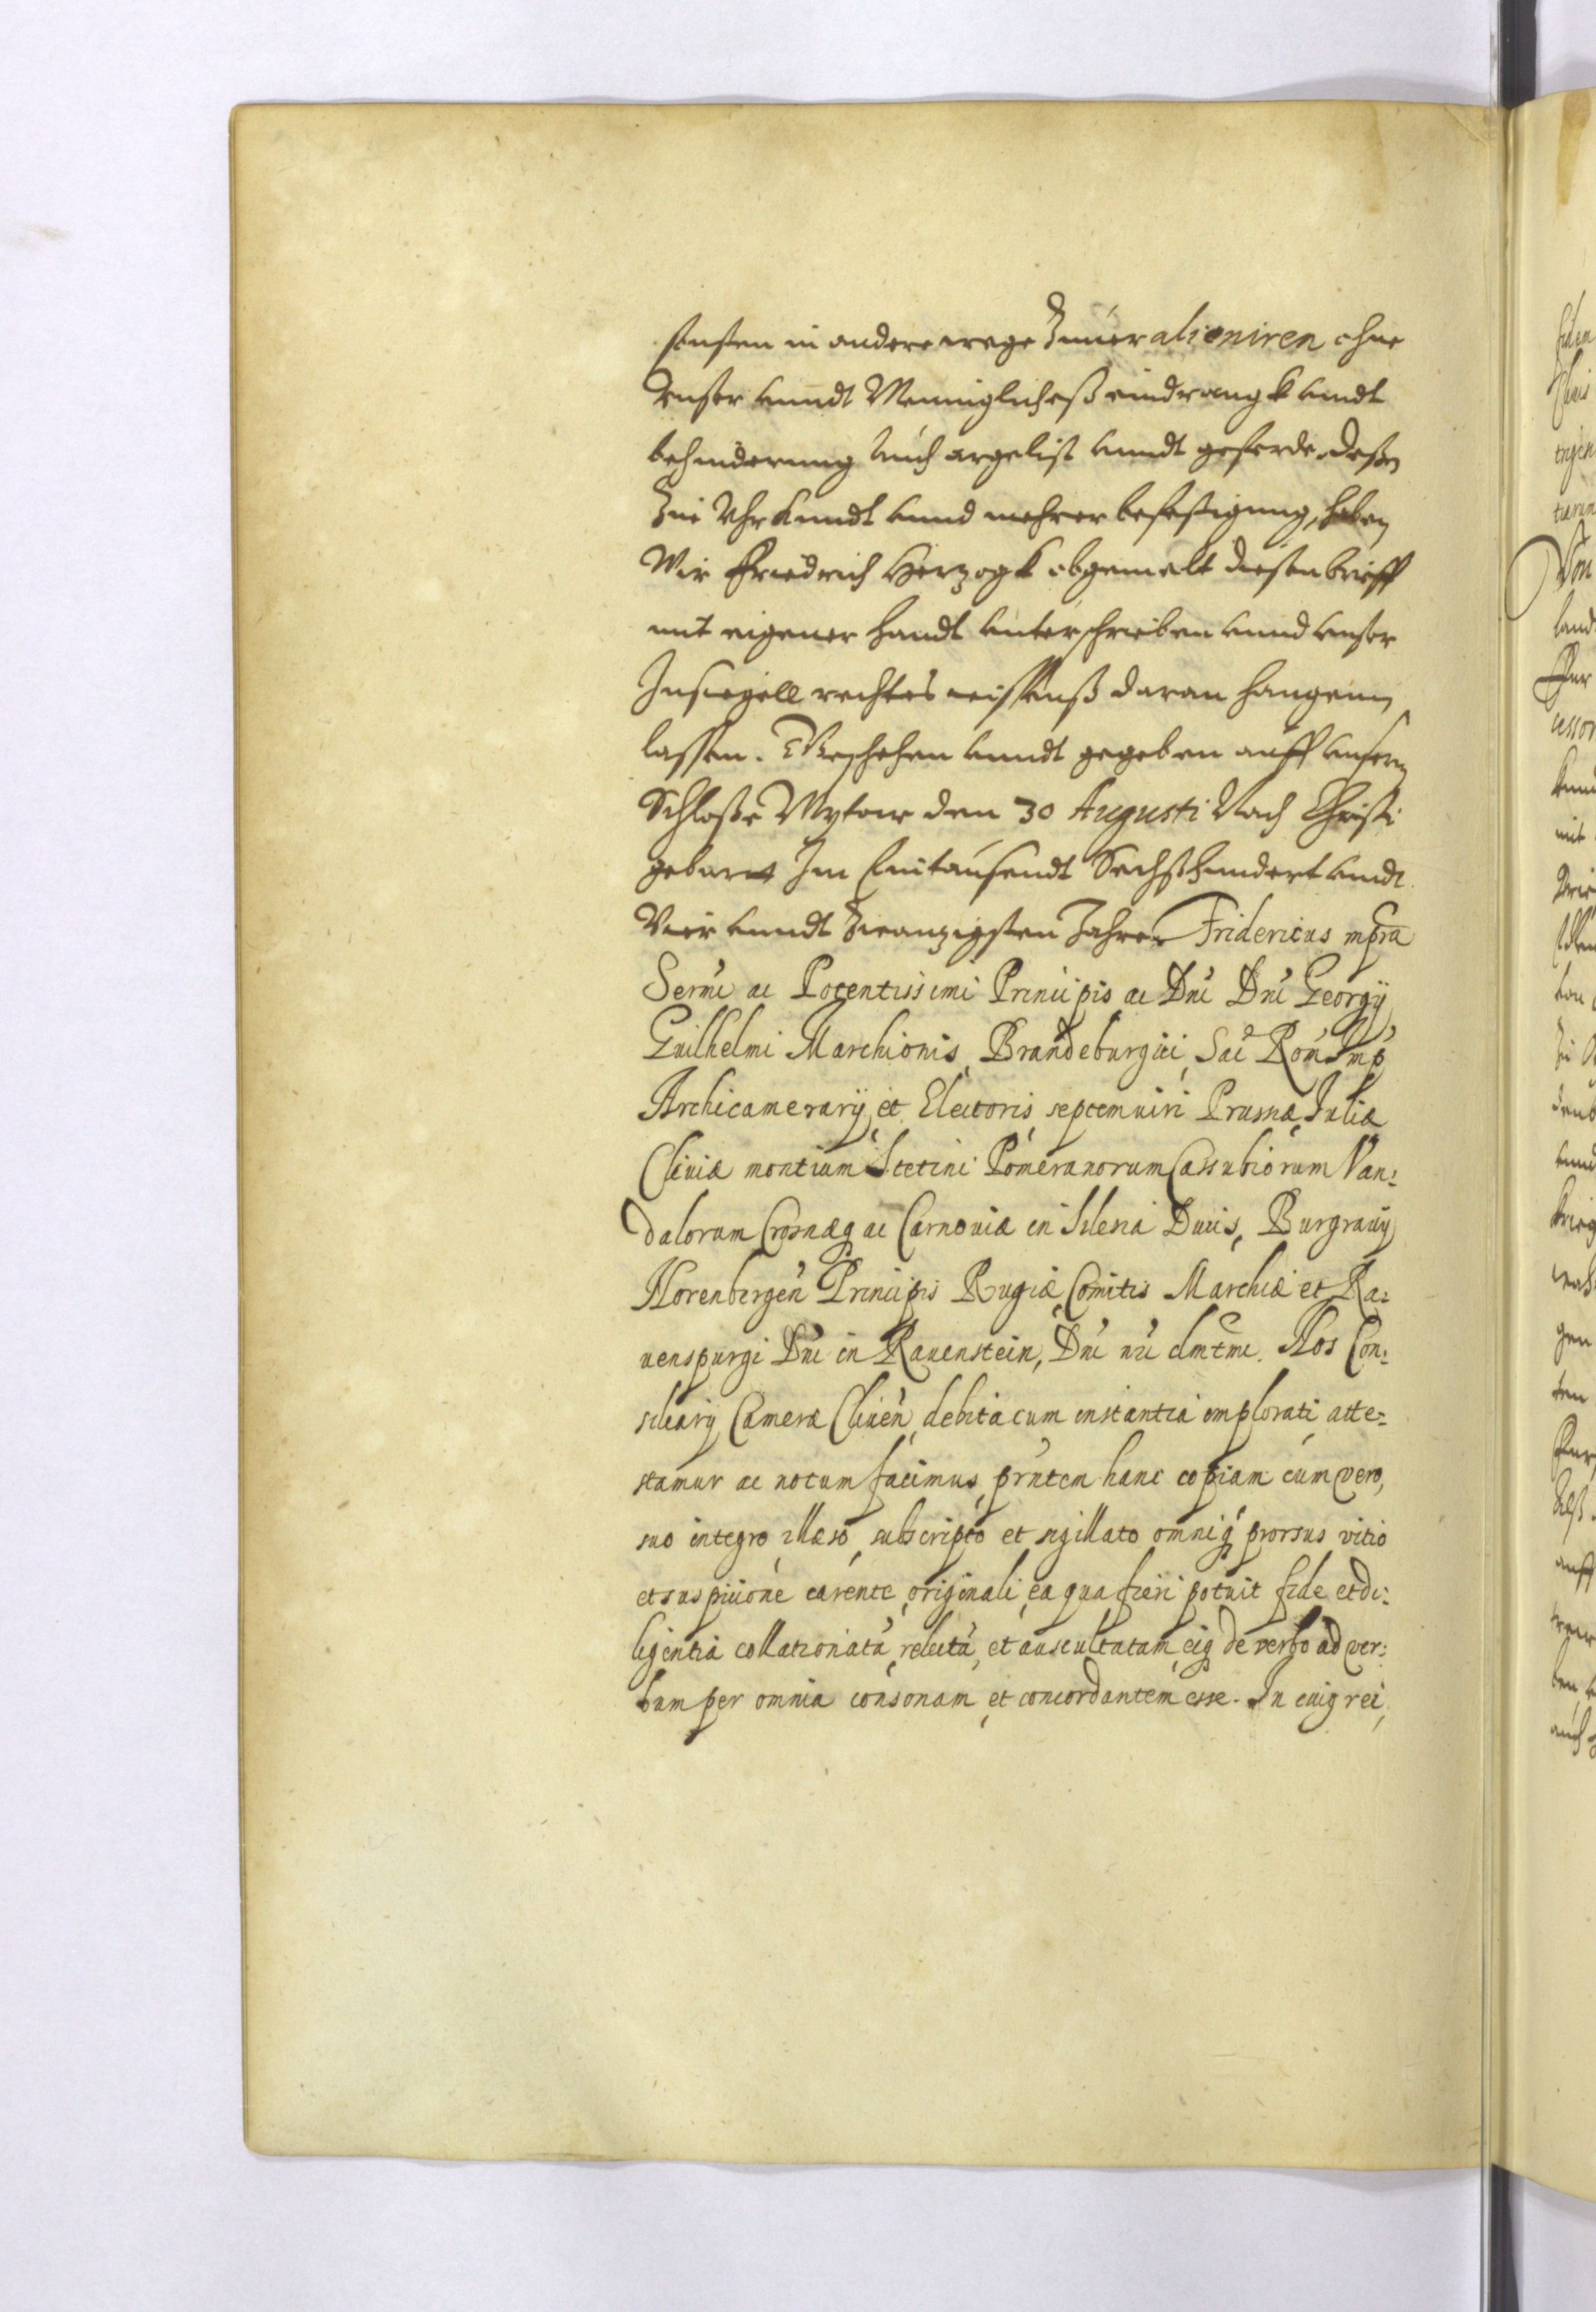 sonsten in andere wege Zuuer alieniren ohne
Vnser vnndt Menniglicheß eindrangk vnndt
behinderung Auch argelist vnndt geferde. Deßen
Zue Vhrkundt vnnd mehrer befestigung, haben
Wir Friedrich Hertzogk obgemelt diesen brieff
mit eigener handt vnterschrieben vnnd vnser
Insiegell rechtes wißenß daran hangenn
lassen. Geschehen vnndt gegeben auff vnserm
Schloße Mytow den 30 Augusti Nach Christi
geburt Im Eintausendt Sechßhundert vnndt
Vier vnndt Zwanzigsten Jahre. Fridericus mpra
Sermi ac Potentissimi Principis ac Dni Dni Georgÿ
Guilhelmi Marchionis, Brandeburgici, Sac Rom Imp
Archicamerarÿ, et Electoris, septemuiri Prussiæ, Iuliæ
Cliuiæ montium Stetini Pomeranorum Cassubiorum Van:
dalorum Crosnæq ac Carnouiæ in Silesia Ducis, Burgrauÿ
Norenbergen Principis Rugiæ, Comitis Marchiæ et Ra:
uenspurgi Dni in Rauenstein, Dni nri clmtmi. Nos Con:
siliarÿ Cameræ Cliuen, debita cum instantia implorati, atte:
stamur ac notum facimus, prntem hanc copiam cum vero,
suo integro, illæso, subscripto et sigillato omniq prorsus vitio
et suspicione carente, originali, ea qua fieri potuit fide et di:
ligentia collationatu, relectu, et auscultatam, eiq de verbo ad ver:
bum per omnia consonam, et concordantem esse. In cuiq rei,